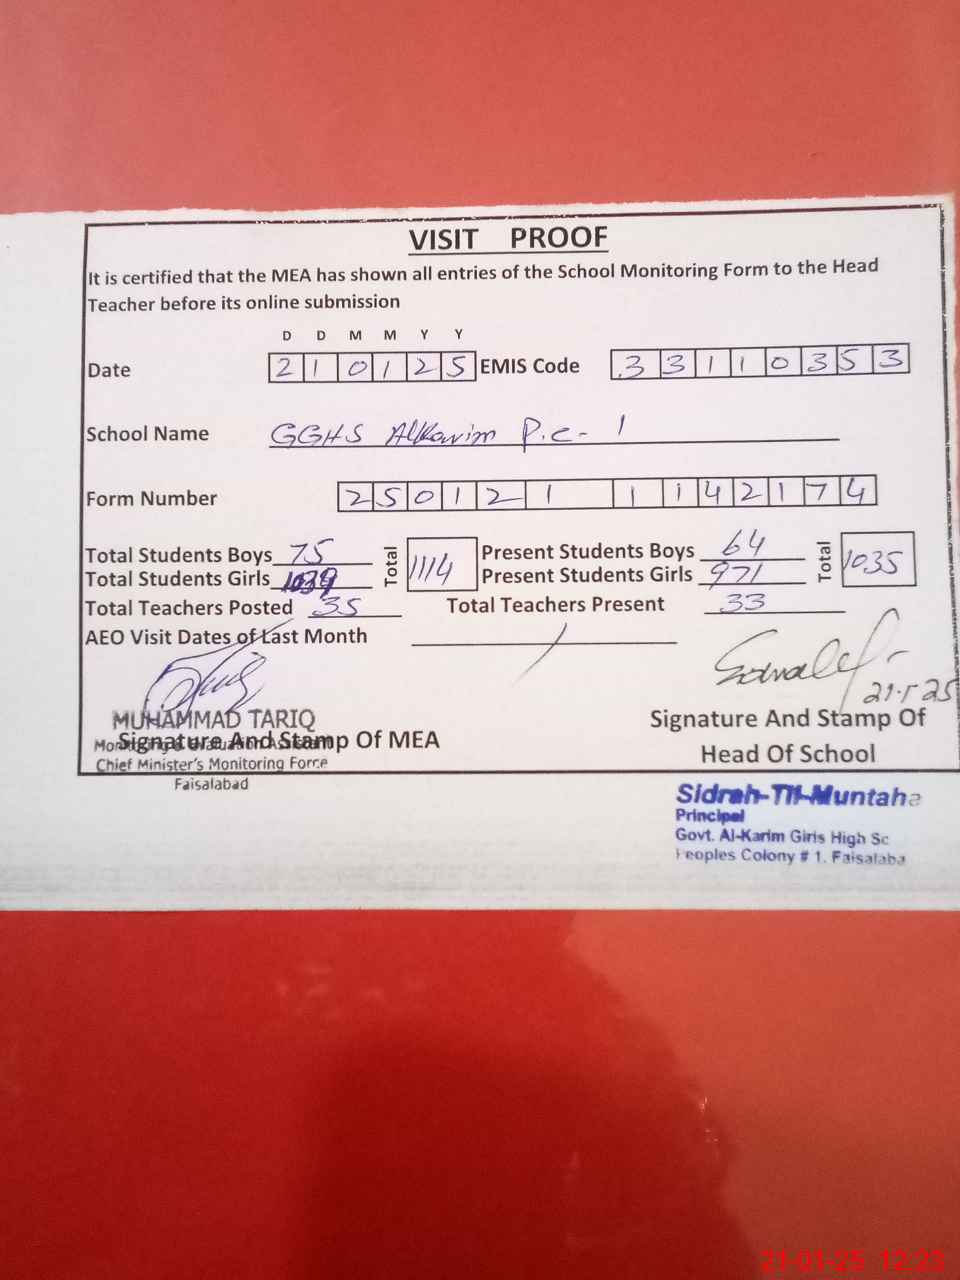 VISIT PROOF
It is certified that the MEA has shown all entries of the School Monitoring Form to the Head
Teacher before its online submission
D D M M Y Y
Date 210125 EMIS Code 33110353
School Name GGHS AlKarim P.C- 1
Form Number 250121 1142174
Total Students Boys 75 Total 1114 Present Students Boys 64 Total 1035
Total Students Girls 1039 Present Students Girls 971
Total Teachers Posted 35 Total Teachers Present 33
AEO Visit Dates of Last Month
21.1.25
MUHAMMAD TARIQ
Signature And Stamp Of MEA
Signature And Stamp Of
Monitoring & Evaluation Assistant
Head Of School
Chief Minister's Monitoring Force
Faisalabad
Sidrah-Tul-Muntaha
Principal
Govt. Al-Karim Girls High Sc
Peoples Colony # 1, Faisalaba
21-01-25 12:23